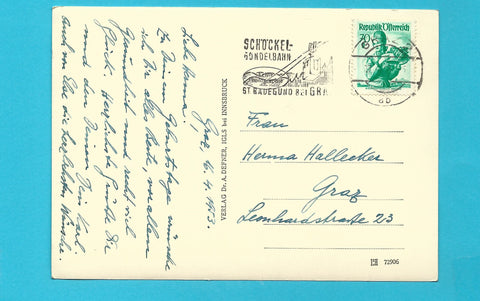 Graz, 6.4.1953.
Liebe Herma!
Zu Deinem Geburtstage wünsche
ich Dir alles Beste, vor allem
Gesundheit und recht viel
Glück. Herzlichste Grüße Dir
und den Deinen Dein Karl.
Auch von Else die herzlichsten Wünsche.
VERLAG Dr. A. DEFNER, IGLS bei INNSBRUCK
SCHÖCKEL-
GONDELBAHN
ST RADEGUND BEI GRA
Republik Österreich
Frau
Herma Hallecker
Graz
Leonhardstraße 23
72906